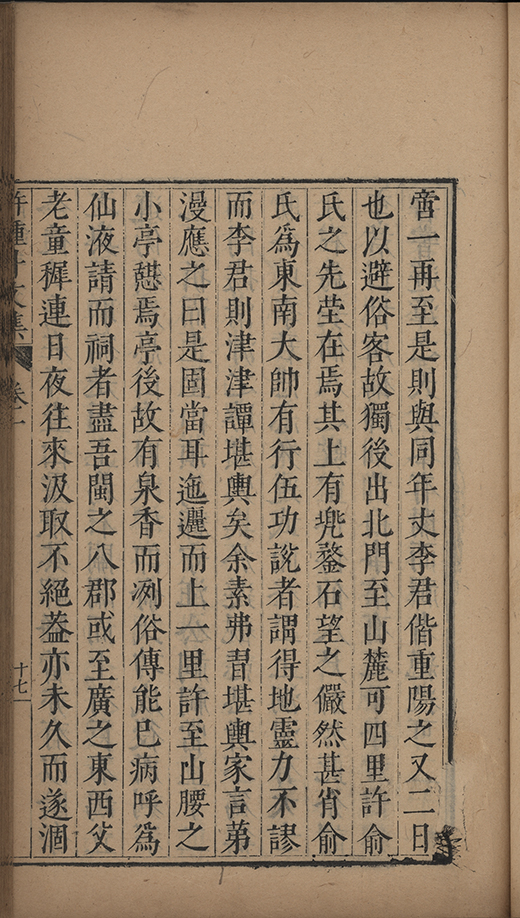 嘗一再至是則與同年丈李君偕重陽之又二日
也以避俗客故獨後出北門至山麓可四里許俞
氏之先塋在焉其上有兠鍪石望之儼然甚肖俞
氏爲東南大帥有行伍功說者謂得地靈力不謬
而李君則津津譚堪輿矣余素弗習堪輿家言第
漫應之曰是固當耳迤邐而上一里許至山腰之
小亭憇焉亭後故有泉香而冽俗傳能巳病呼爲
仙液請而祠者盡吾閩之八郡或至廣之東西艾
老童穉連日夜徃來汲取不絕葢亦未久而遂涸
許鍾斗文集 卷二
十七